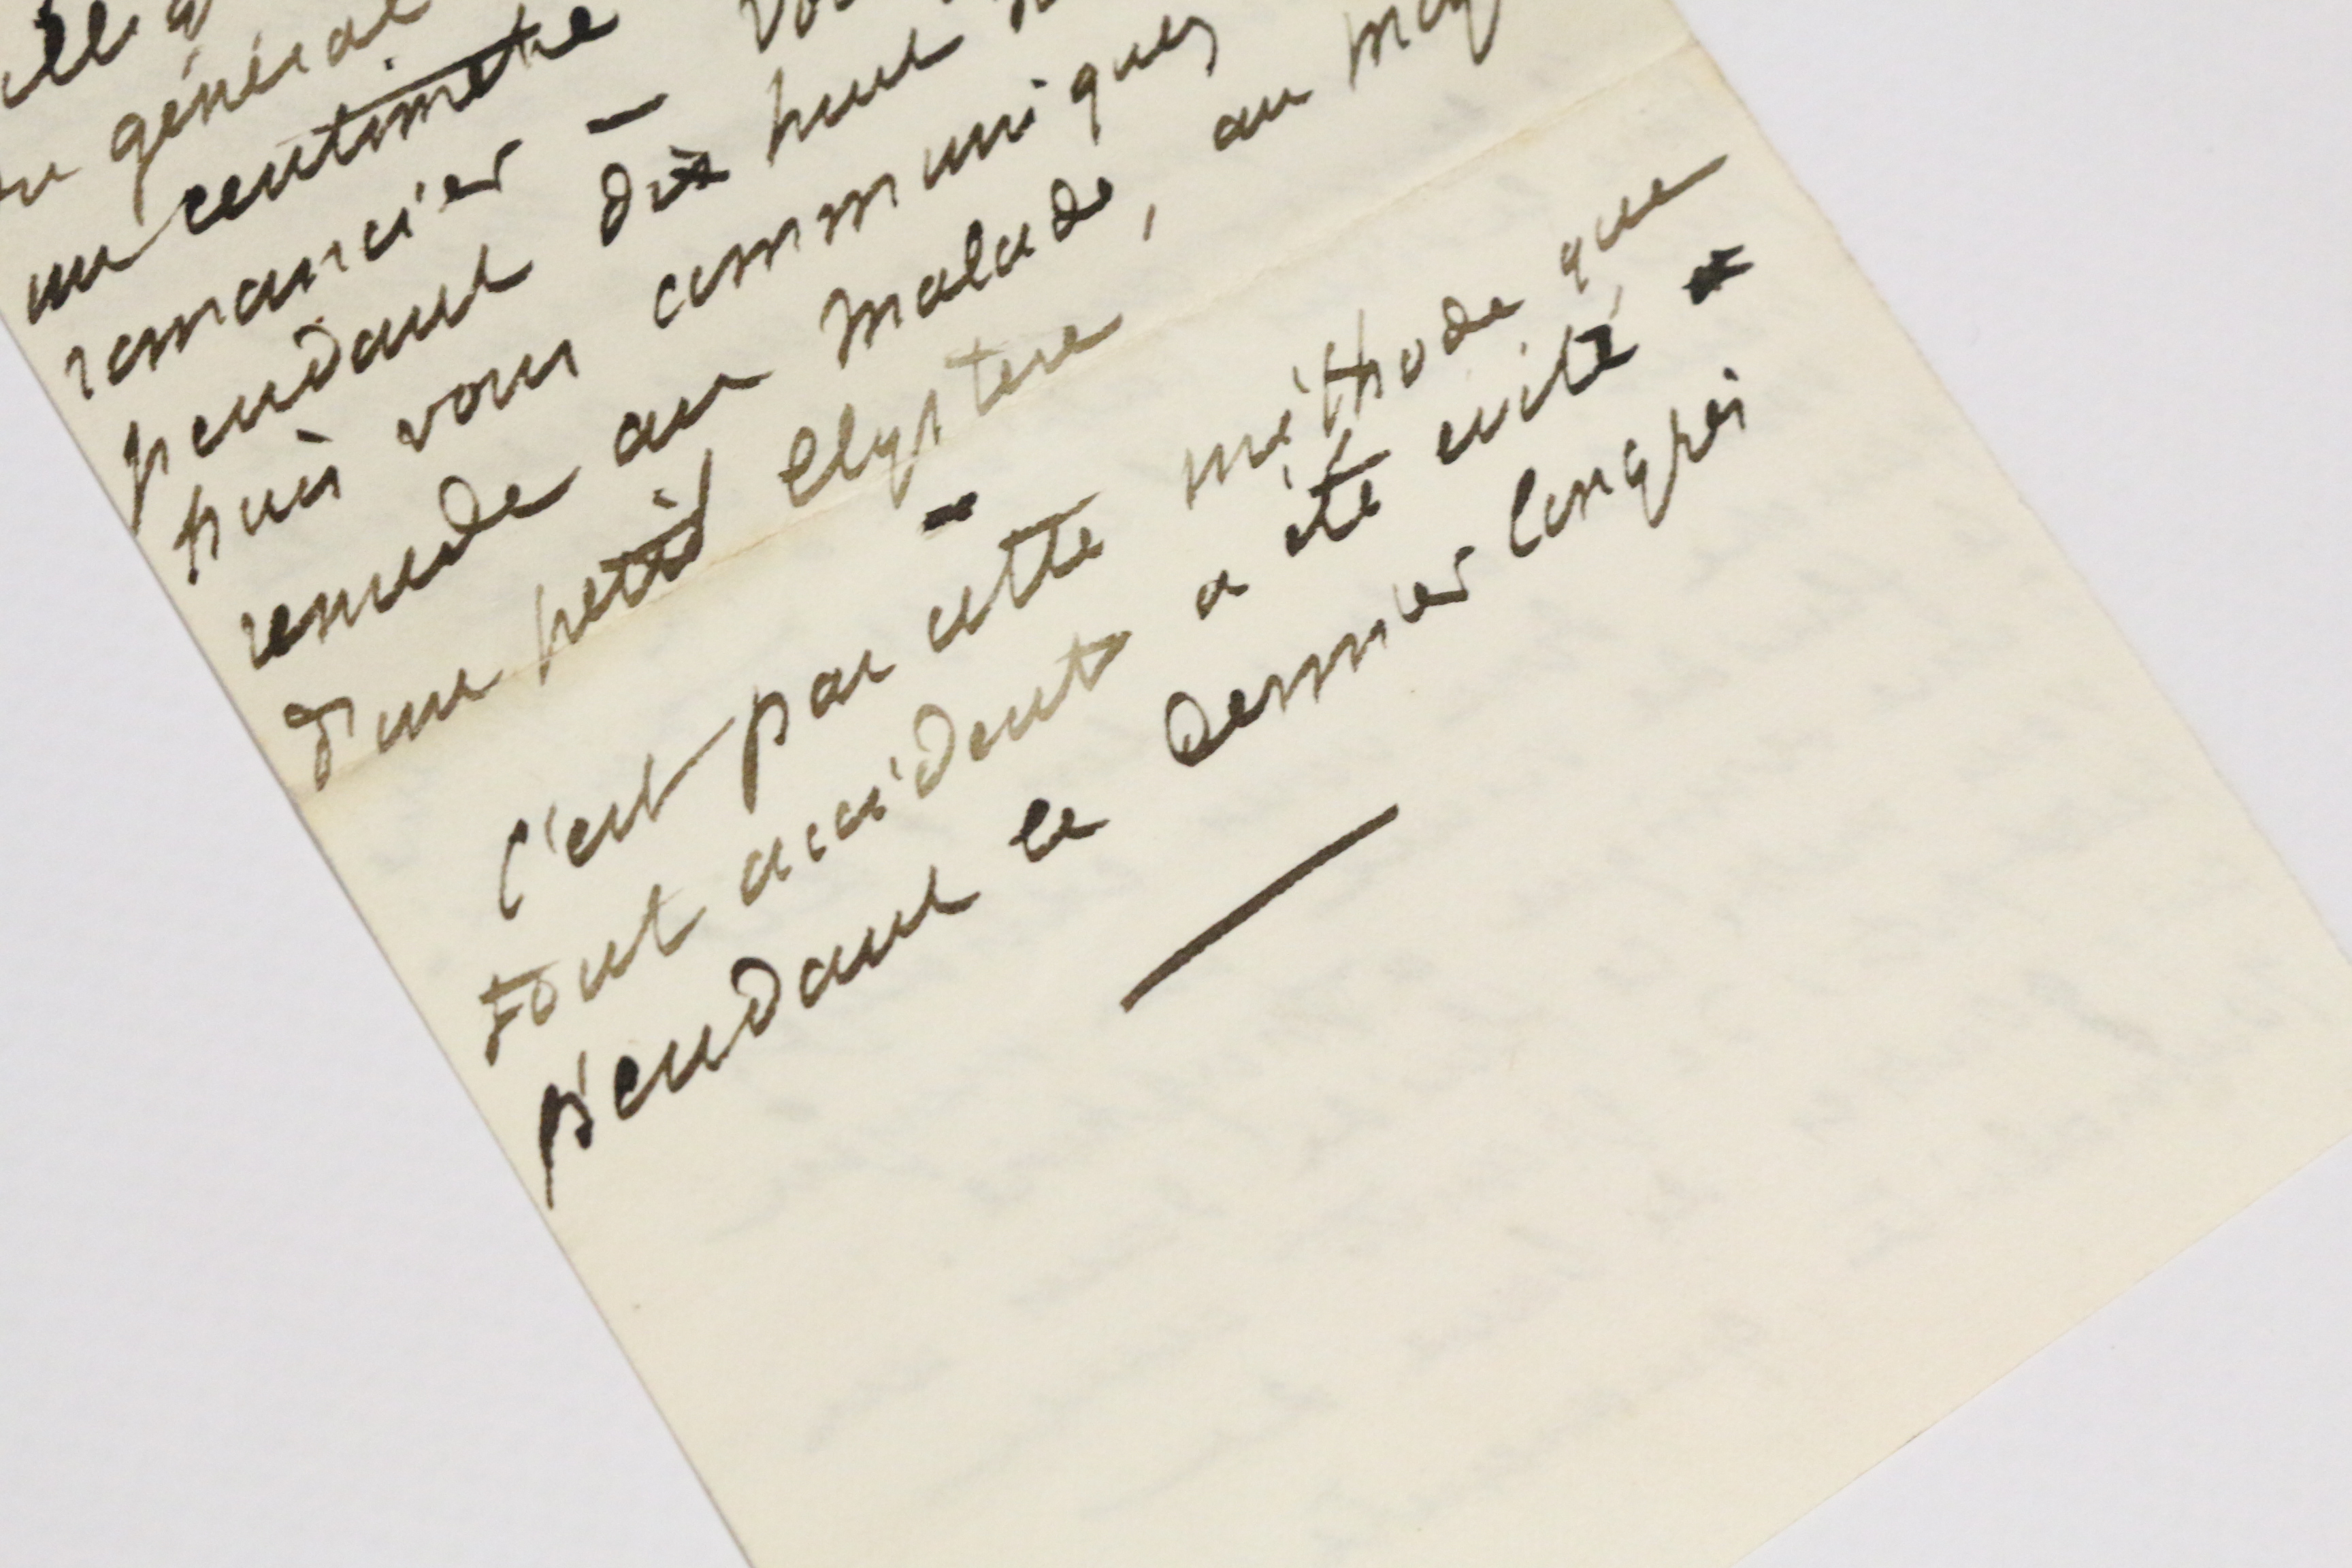 général
un centimètre
romancier –
pendant dix huit
puis vous communiquez
remède au malade, au
d'un petit clystere –
C'est par cette méthode que
tout accident a été evité
pendant le dernier Congrès